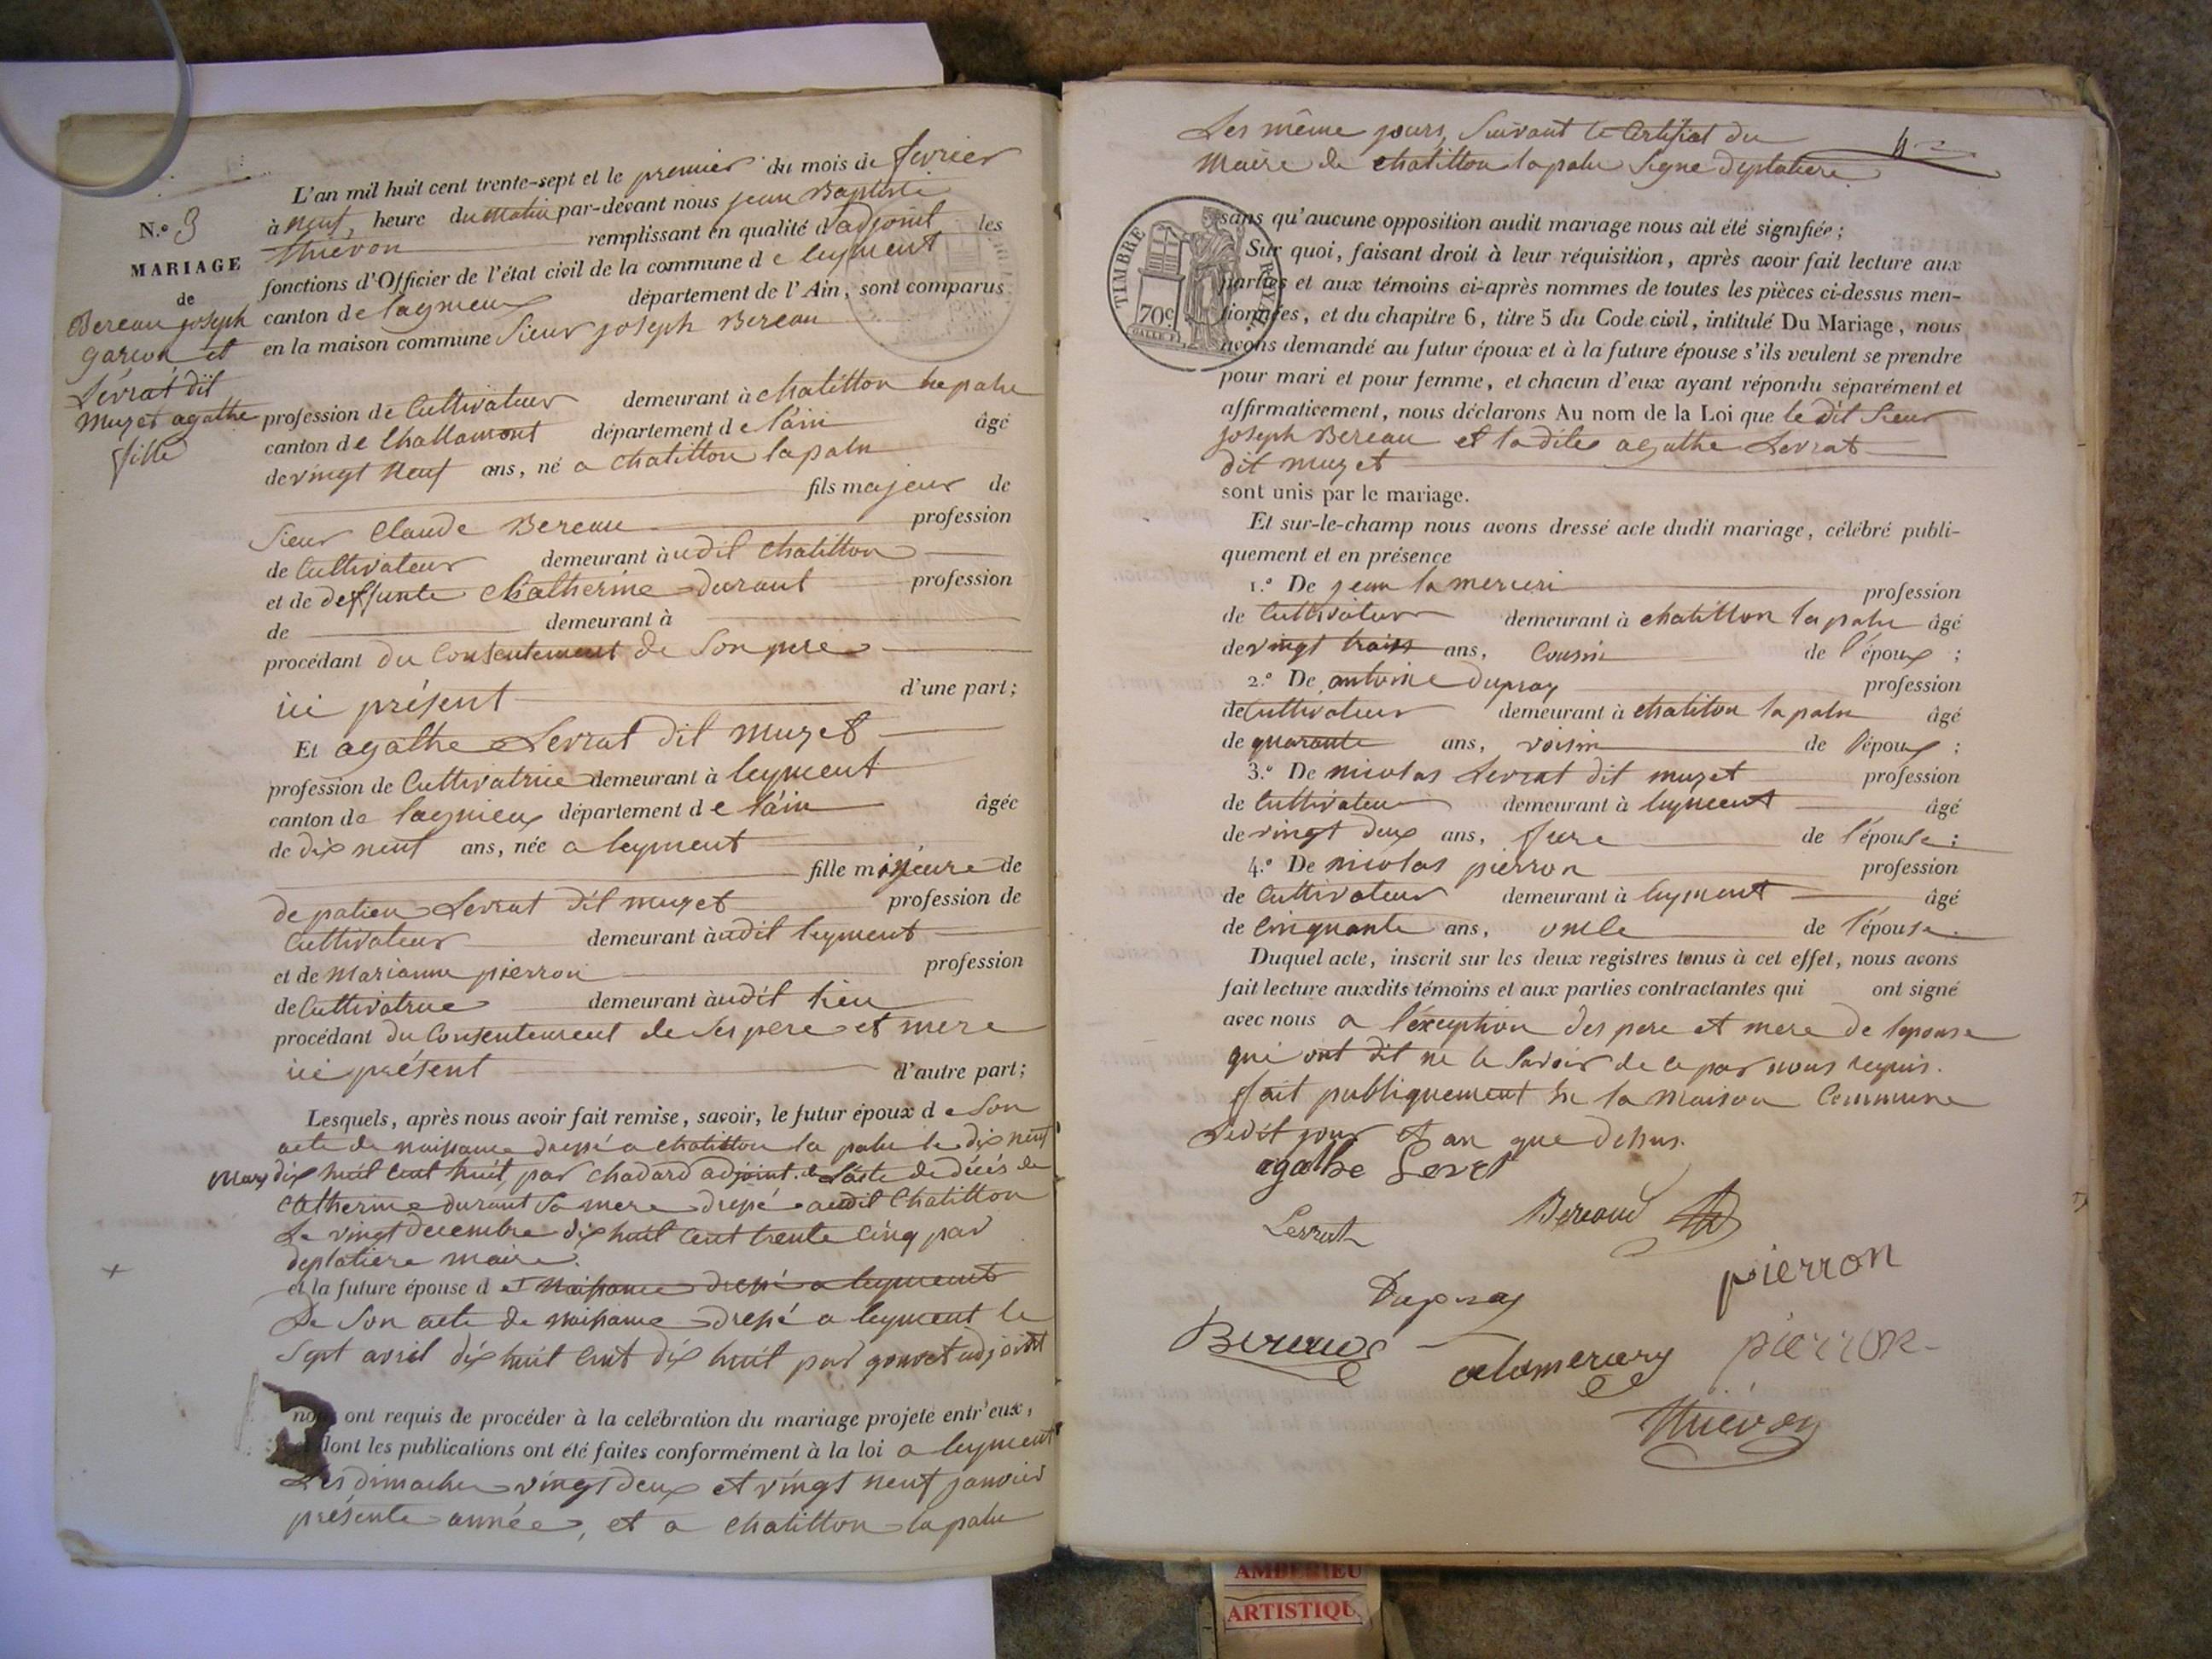 L'an mil huit cent trente-sept et le premier du mois de fevrier
à neuf, heure du matin par-devant nous jean Baptiste
thievon remplissant en qualité d'adjoint les
fonctions d'Officier de l'état civil de la commune de leyment
canton de lagnieux département de l'Ain, sont comparus
en la maison commune Sieur joseph Bereau
N.o 3
MARIAGE
de
Bereau joseph
garcon et
Levrat dit
muzet agathe
fille
profession de Cultivateur demeurant à chatillon la palu
canton de Challamont département de l'ain âgé
de vingt neuf ans, né a chatillon la palu
fils majeur de
Sieur Claude Bereau profession
de Cultivateur demeurant à udit chatillon
et de deffunte Catherine durant profession
de demeurant à
procédant du Consentement de Son pere
ici présent d'une part;
Et agathe Levrat dit muzet
profession de Cultivatrice demeurant à leyment
canton de lagnieux département de l'ain âgée
de dix neuf ans, née a leyment
fille mineure de
de patien Levrat dit muzet profession de
Cultivateur demeurant à udit leyment
et de Marianne pierron profession
de Cultivatrice demeurant à udit lieu
procédant du Consentement de Ses pere et mere
ici présent d'autre part;
Lesquels, après nous avoir fait remise, savoir, le futur époux de Son
acte de naissance dressé a chatillon la palu le dix neuf
Mars dix huit cent huit, par chadard adjoint. de l'acte de décés de
Catherine durant Sa mere dressé audit Chatillon
Le vingt decembre dix huit Cent trente Cinq par
deplatiere maire.
et la future épouse d et naissance dressé a leyment
De Son acte de naissance dressé a leyment le
Sept avril dix huit Cent dix huit par gouvet adjoint
nous ont requis de procéder à la celébration du mariage projete entr'eux,
dont les publications ont été faites conformément à la loi a leyment
Les dimaches vingt deux et vingt neuf janvier
présente année, et a chatillon la palu
Les même jours, Suivant le Certifiat du
Maire de chatillon la palu Signé Deplatiere
4
TIMBRE ROYAL
70 c.
sans qu'aucune opposition audit mariage nous ait été signifiée;
Sur quoi, faisant droit à leur réquisition, après avoir fait lecture aux
parties et aux témoins ci-après nommes de toutes les pièces ci-dessus men-
tionnées, et du chapitre 6, titre 5 du Code civil, intitulé Du Mariage, nous
avons demandé au futur époux et à la future épouse s'ils veulent se prendre
pour mari et pour femme, et chacun d'eux ayant répondu séparément et
affirmativement, nous déclarons Au nom de la Loi que le dit Sieur
joseph Bereau et la dite agathe Levrat
dit muzet
sont unis par le mariage.
Et sur-le-champ nous avons dressé acte dudit mariage, célébré publi-
quement et en présence
1.o De jean la merceri profession
de Cultivateur demeurant à chatillon la palu âgé
de vingt trois ans, Cousin de l'époux;
2.o De antoine dupray profession
de Cultivateur demeurant à chatillon la palu âgé
de quarante ans, voisin de l'époux;
3.o De nicolas Levrat dit muzet profession
de Cultivateur demeurant à leyment âgé
de vingt deux ans, frere de l'épouse;
4.o De nicolas pierron profession
de Cultivateur demeurant à leyment âgé
de Cinquante ans, oncle de l'épouse.
Duquel acte, inscrit sur les deux registres tenus à cet effet, nous avons
fait lecture auxdits témoins et aux parties contractantes qui ont signé
avec nous a l'exeption des pere et mere de lepouse
qui ont dit ne le Savoir de ce par nous requis.
fait publiquement En la maison Commune
Ledit jour et an que dessus.
agathe Levrat
Levrat Bereaud
pierron
Dupray
Bereaud alamercery pierron
thievon
AMBERIEU
ARTISTIQU